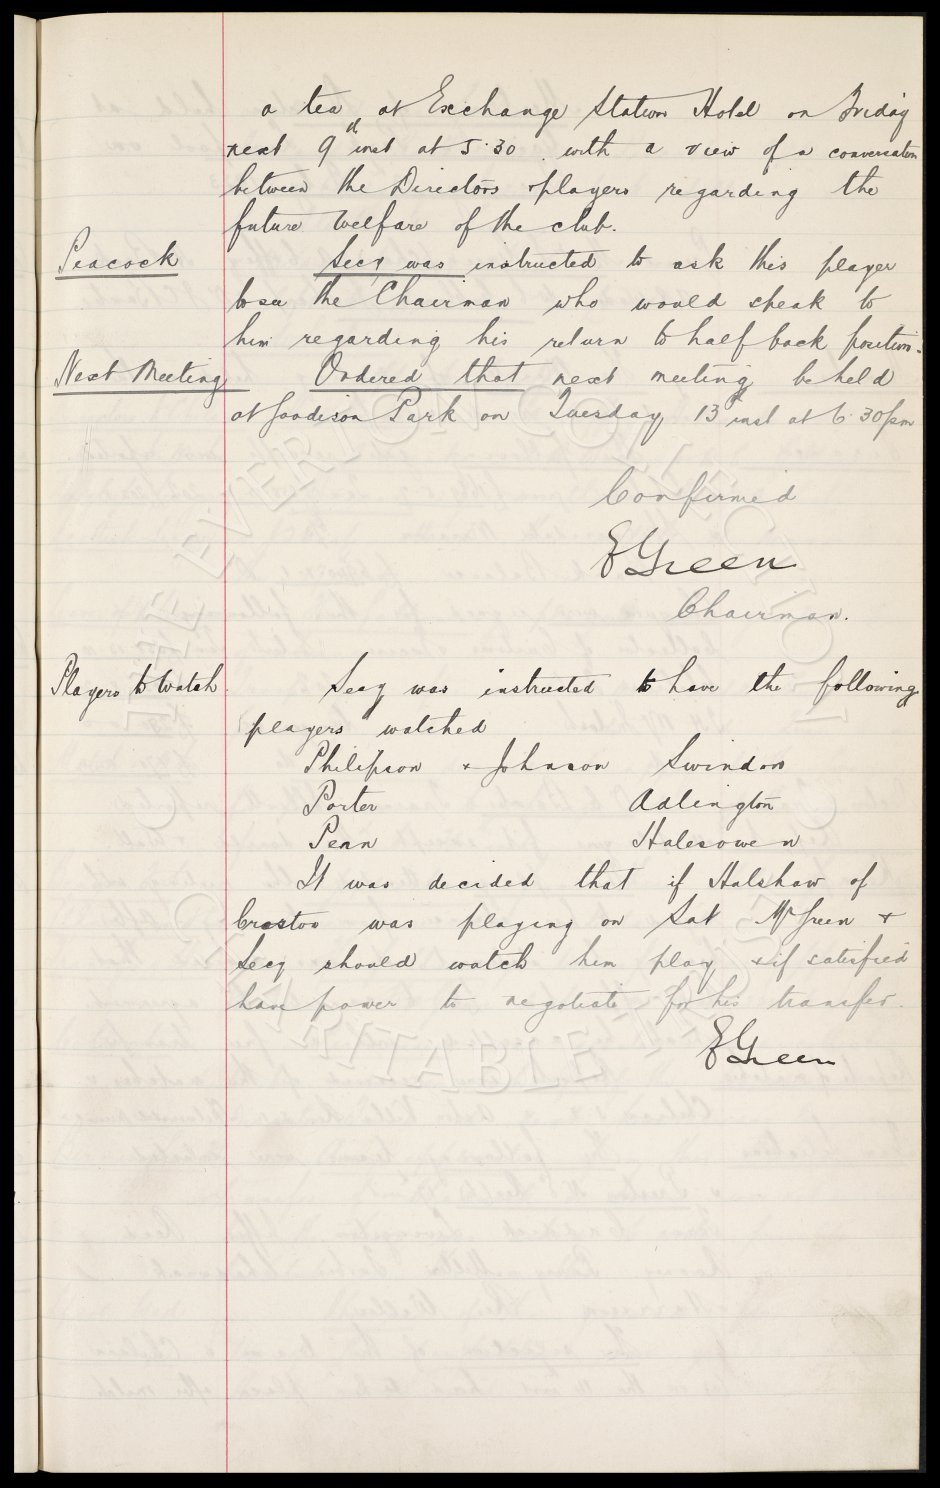 a tea at Exchange Station Hotel on Friday
next 9th inst at 5.30 with a view of a conversation
between the Directors & players regarding the
future welfare of the club.
Peacock Secy was instructed to ask this player
to see the Chairman who would speak to
him regarding his return to half back position.
Next Meeting Ordered that next meeting be held
at Goodison Park on Tuesday 13th inst at 6.30pm
Confirmed
E Green
Chairman.
Players to Watch Secy was instructed to have the following
players watched
Philipson & Johnson Swindon
Porter Adlington
Penn Halesowen
It was decided that if Halshaw of
Croston was playing on Sat Mr Green &
Secy should watch him play & if satisfied
have power to negotiate for his transfer.
E Green
THE EVERTON COLLECTION CHARITABLE TRUST